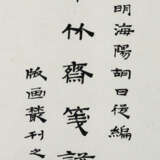 明海陽胡曰從編
十竹齋箋譜
版画叢刊之